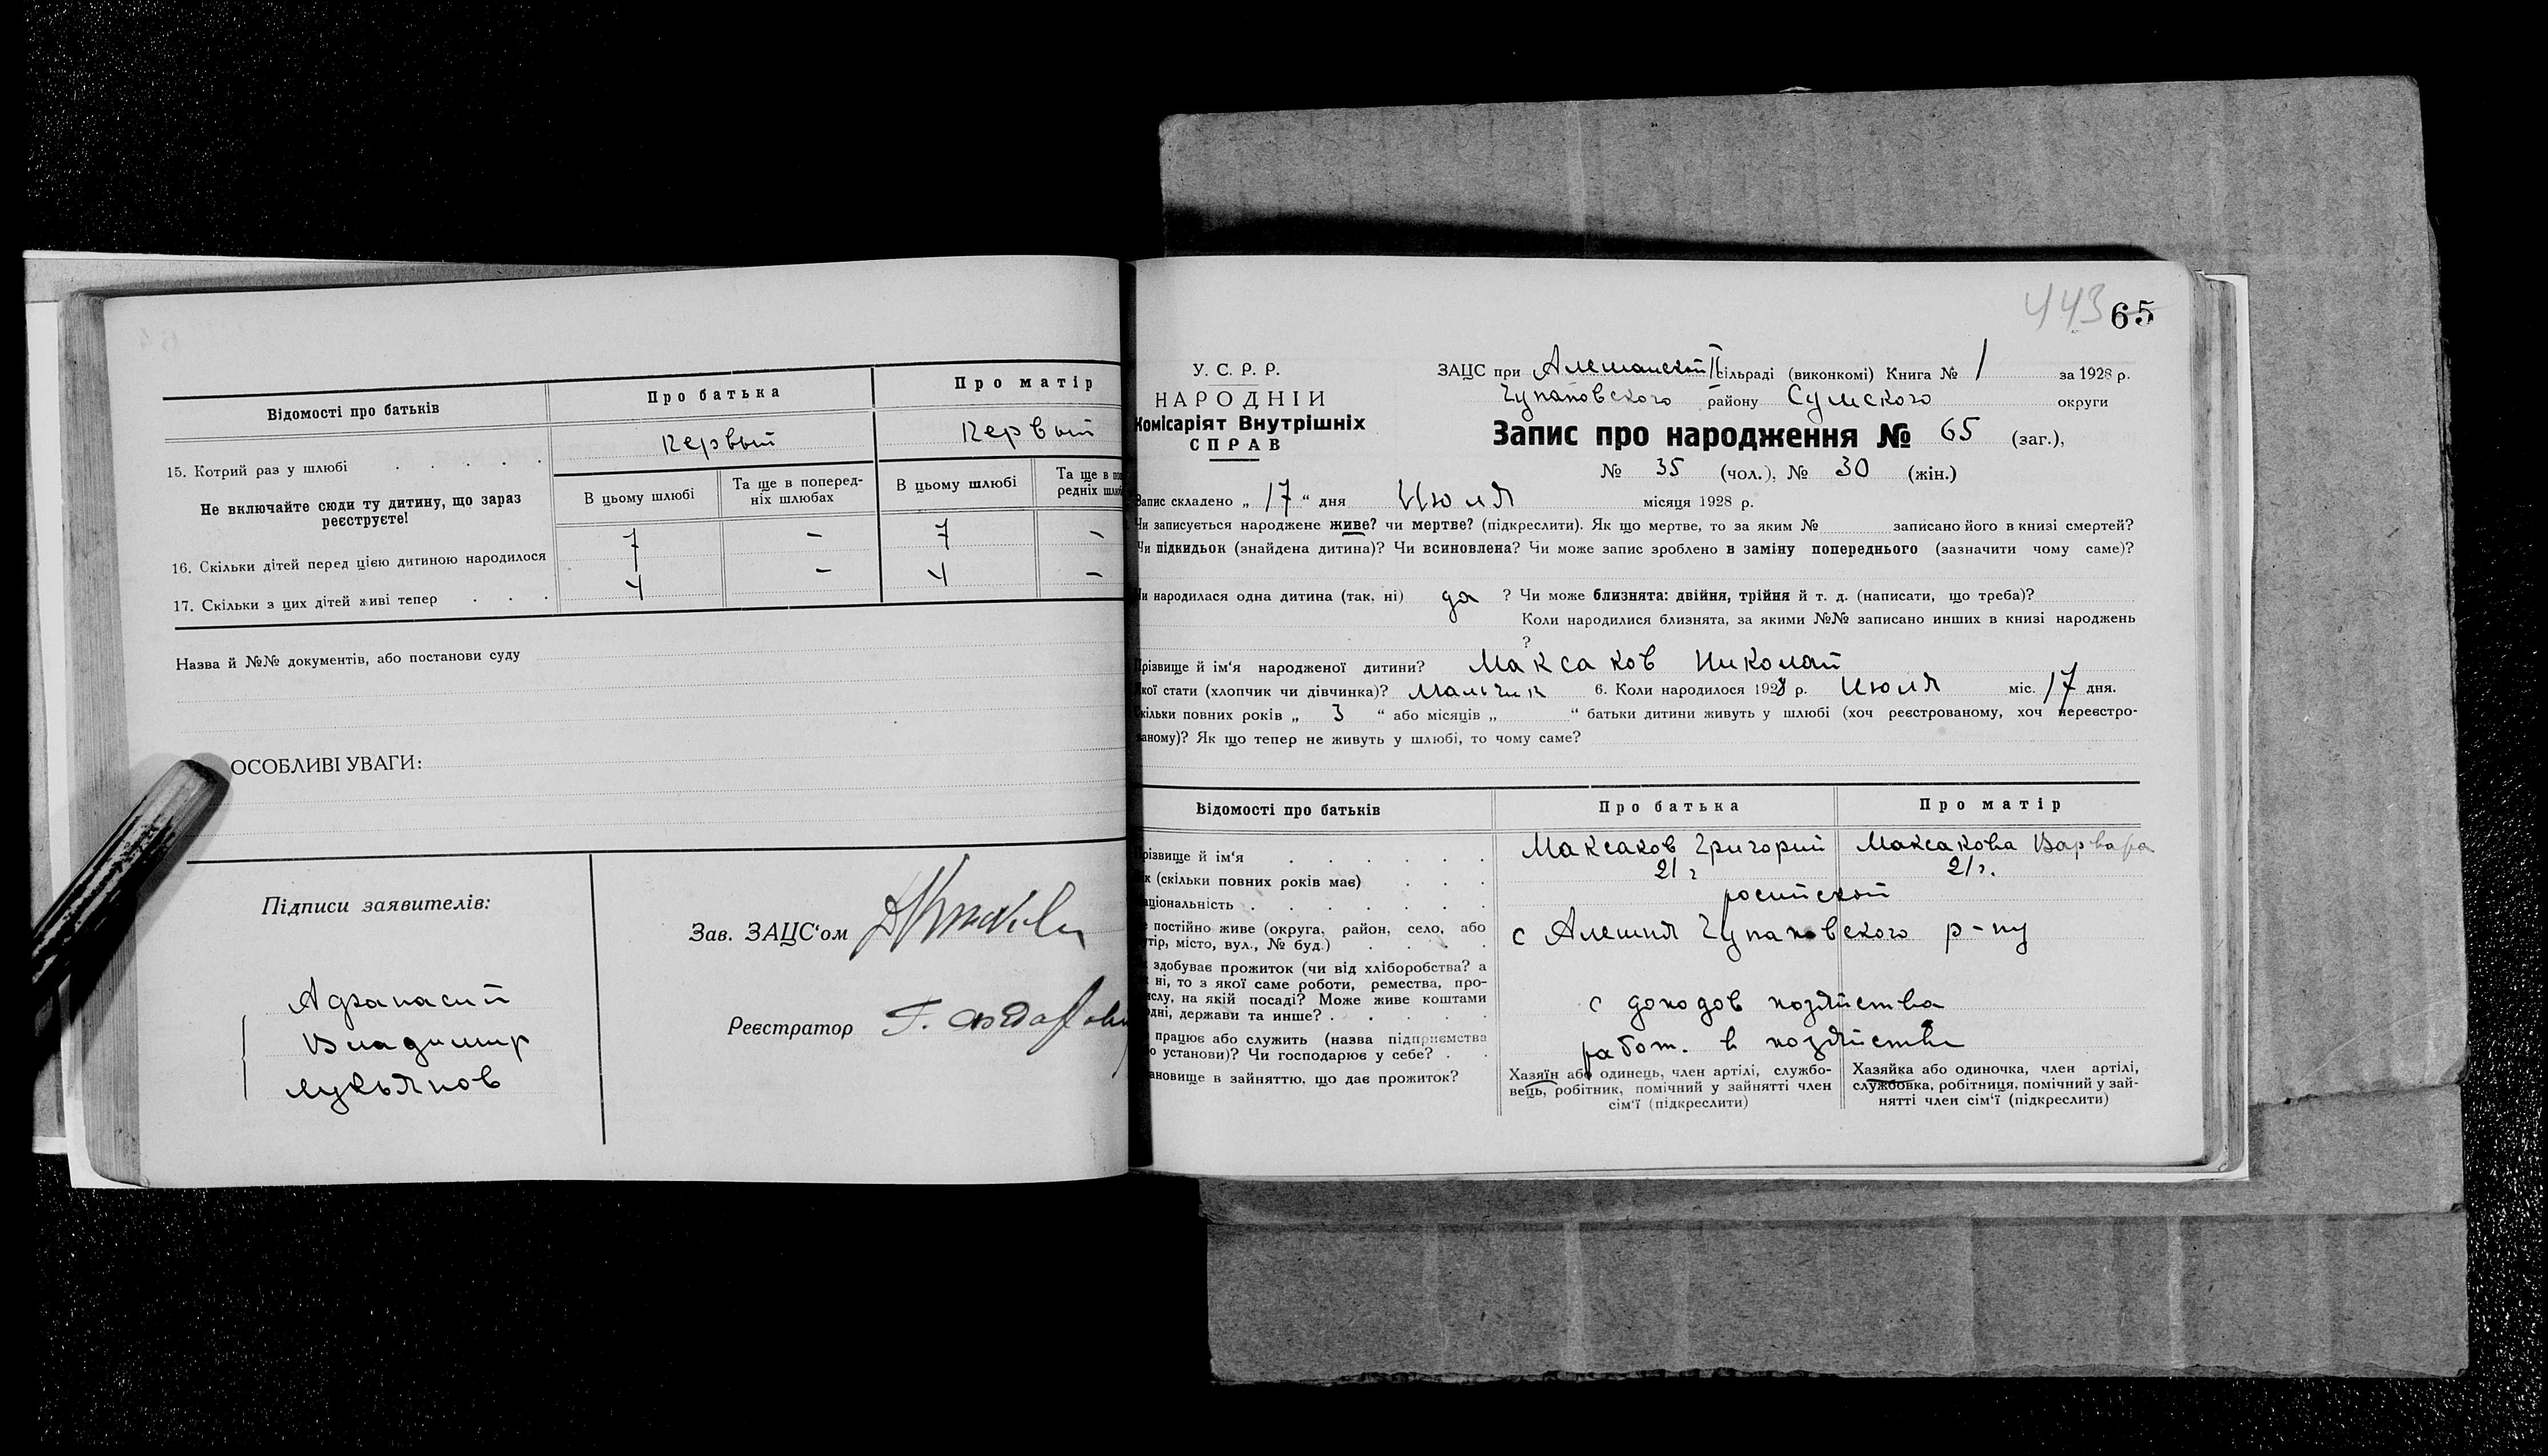 Відомості про батьків
Про батька
Про матір
15. Котрий раз у шлюбі
первый
первый
Не включайте сюди ту дитину, що зараз реєструєте!
В цьому шлюбі
Та ще в поперед-
ніх шлюбах
В цьому шлюбі
Та ще в по
редніх шлю
16. Скільки дітей перед цією дитиною народилося
7 – 7 –
17. Скільки з цих дітей живі тепер
4 – 4 –
Назва й №№ документів, або постанови суду
ОСОБЛИВІ УВАГИ:
Підписи заявителів:
Афанасий
Владимир
Лукьянов
Зав. ЗАЦС‘ом
Реєстратор
443 65
У. С. Р. Р.
НАРОДНІЙ
Комісаріят Внутрішніх
СПРАВ
ЗАЦС при Алешанской II сільраді (виконкомі) Книга № 1 за 1928 р.
Чупаховского району Сумского округи
Запис про народження № 65 (заг.),
№ 35 (чол.), № 30 (жін.)
Запис складено „ 17 “ дня Июля місяця 1928 р.
Чи записується народжене живе? чи мертве? (підкреслити). Як що мертве, то за яким № записано його в книзі смертей?
Чи підкидьок (знайдена дитина)? Чи всиновлена? Чи може запис зроблено в заміну попереднього (зазначити чому саме)?
Чи народилася одна дитина (так, ні) да ? Чи може близнята: двійня, трійня й т. д. (написати, що треба)?
Коли народилися близнята, за якими №№ записано инших в книзі народжень
?
Прізвище й ім‘я народженої дитини? Максаков Николай
Якої стати (хлопчик чи дівчинка)? Мальчик 6. Коли народилося 1928 р. Июля міс. 17 дня.
Скільки повних років „ 3 “ або місяців „ “ батьки дитини живуть у шлюбі (хоч реєстрованому, хоч нереєстро-
ваному)? Як що тепер не живуть у шлюбі, то чому саме?
Відомості про батьків
Про батька
Про матір
різвище й ім‘я
Максаков Григорий
Максакова Варвара
к (скільки повних років має)
21 г
21 г.
аціональність
росийской
постійно живе (округа, район, село, або
утір, місто, вул., № буд.)
с Алешня Чупаховского р-ну
здобуває прожиток (чи від хліборобства? а
ні, то з якої саме роботи, ремества, про-
ислу, на якій посаді? Може живе коштами
одні, держави та инше?
с доходов хозяйства
працює або служить (назва підприємства
о установи)? Чи господарює у себе?
работ. в хозяйстве
ановище в зайняттю, що дає прожиток?
Хазяїн або одинець, член артілі, службо-
вець, робітник, помічний у зайнятті член
сім‘ї (підкреслити)
Хазяйка або одиночка, член артілі,
службовка, робітниця, помічний у зай-
нятті член сім‘ї (підкреслити)